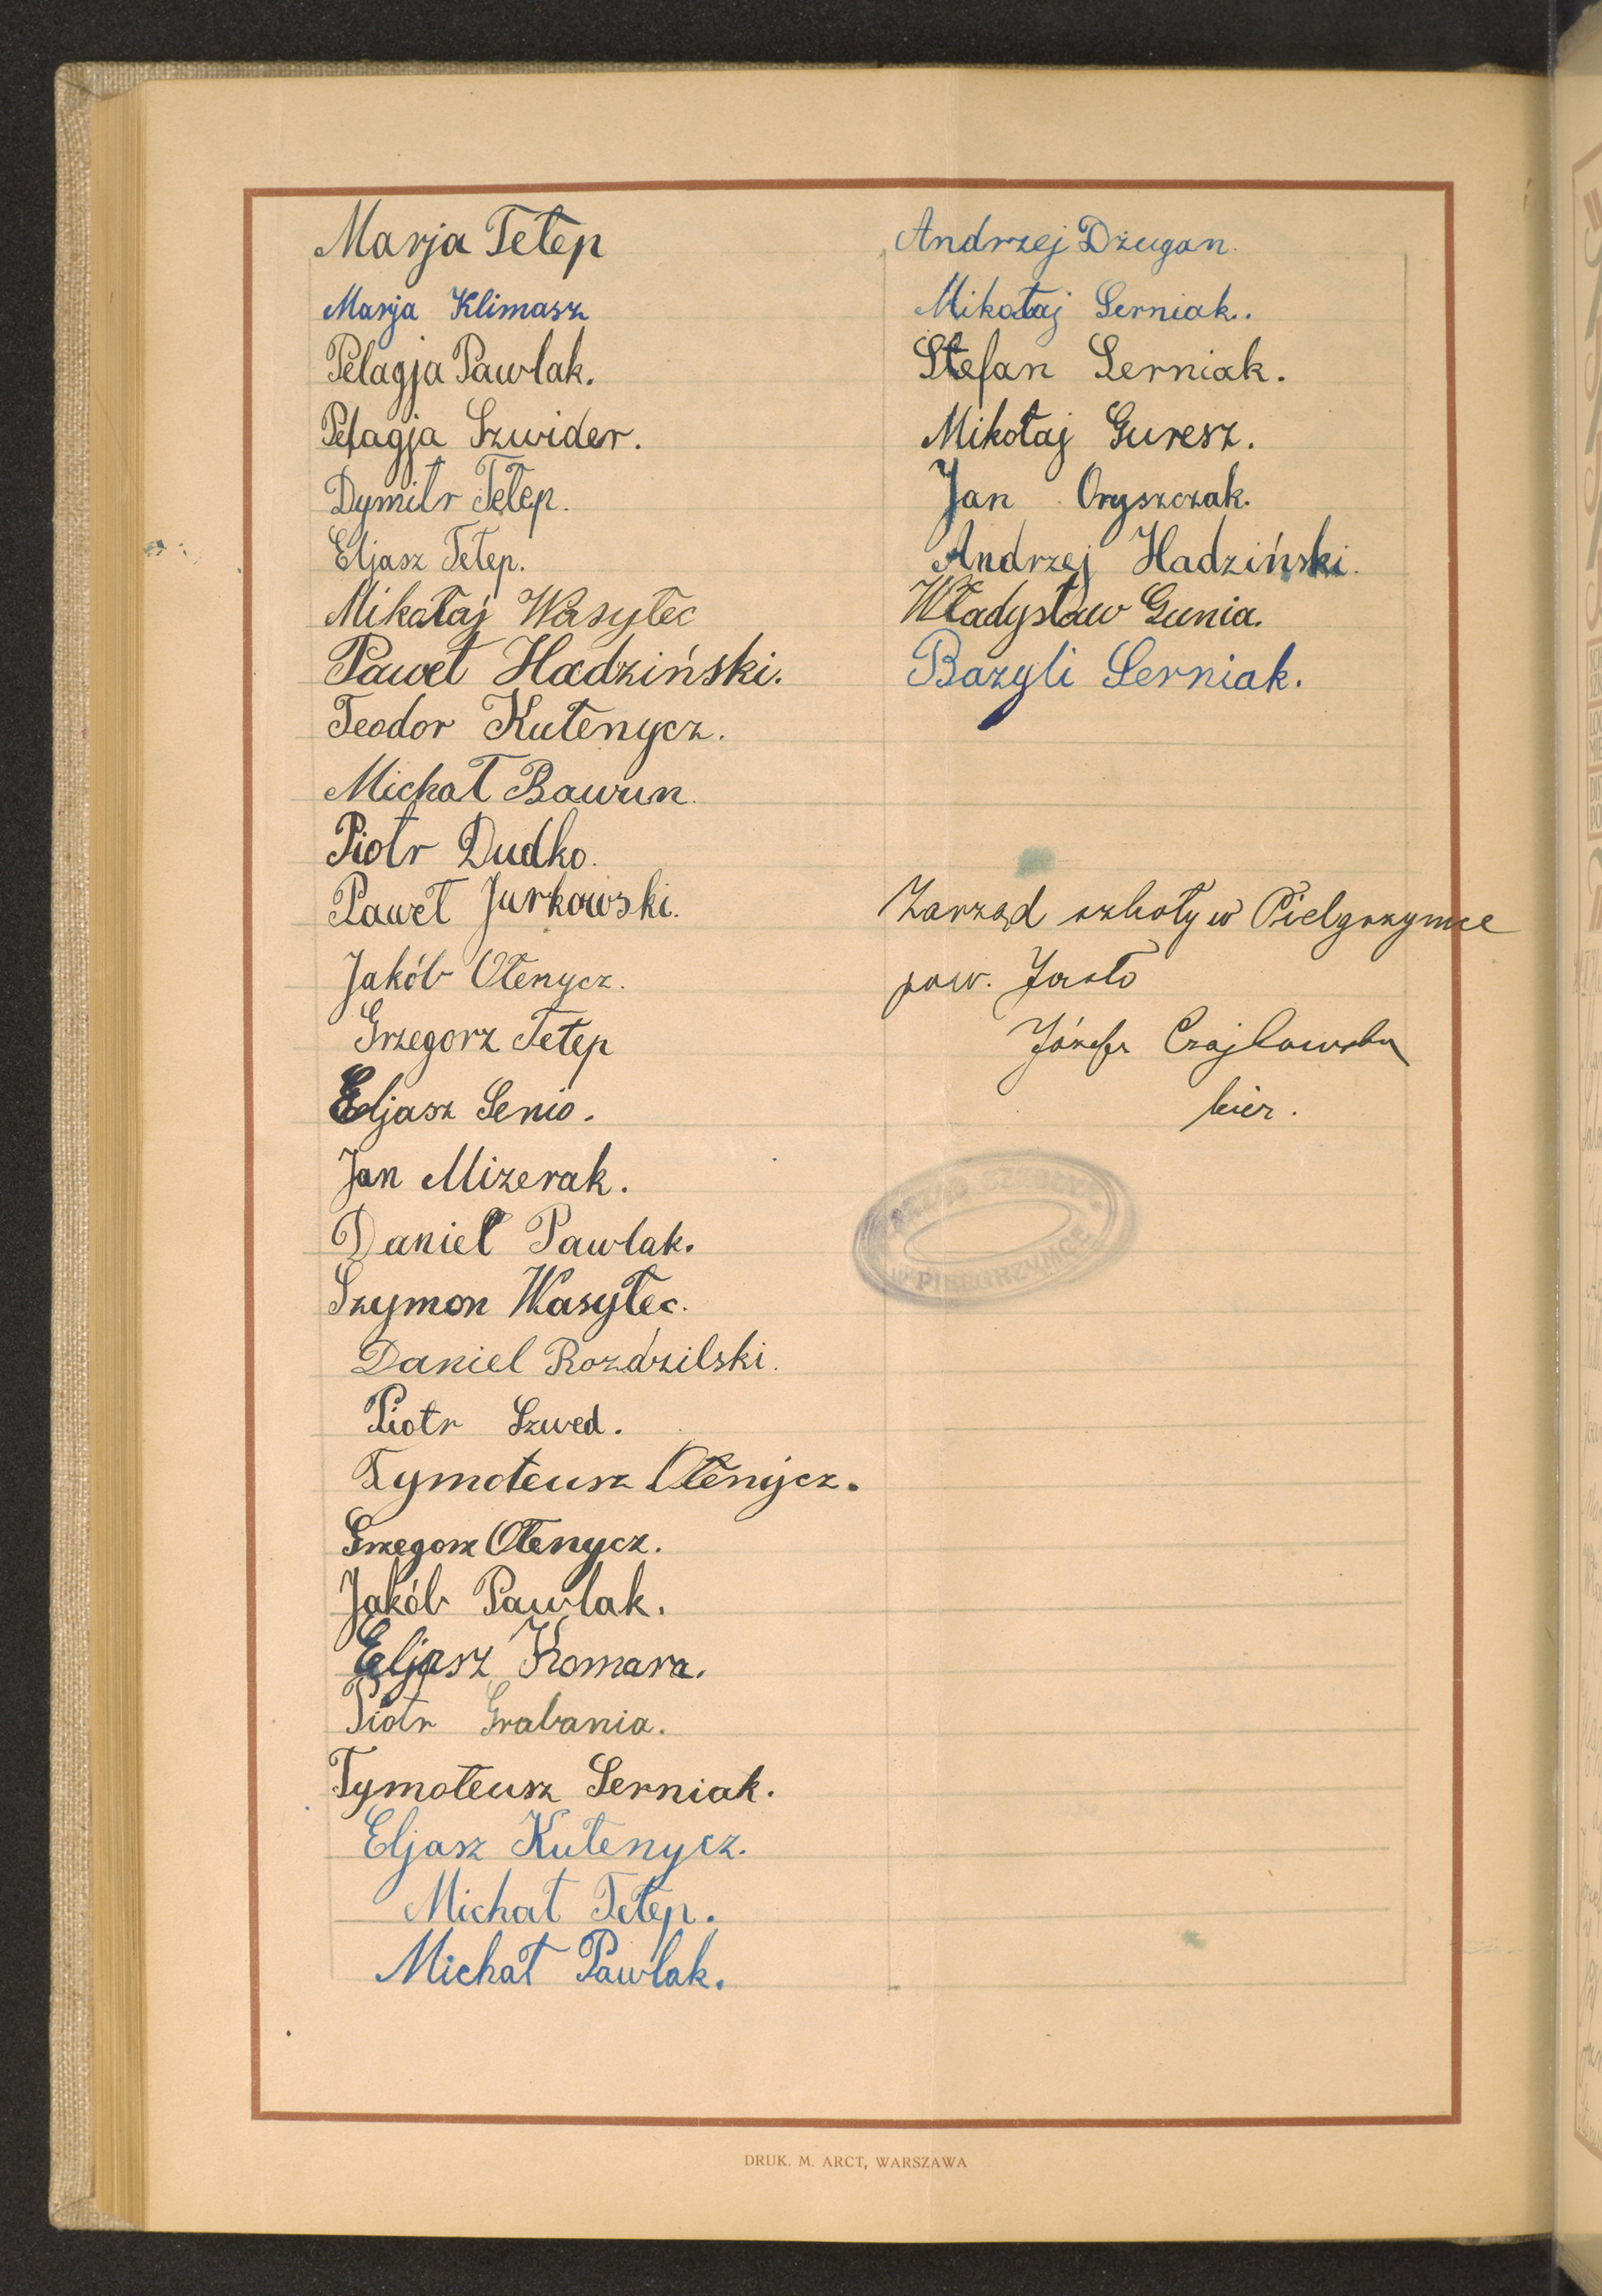 Marja Tełep
Marja Klimasz
Pelagja Pawlak.
Pelagja Szwider.
Dymitr Tełep.
Eljasz Tełep.
Mikołaj Wasyłec
Paweł Hadziński.
Teodor Kułenycz.
Michał Bawun.
Piotr Dudko.
Paweł Jurkowski.
Jakób Ołenycz.
Grzegorz Tełep
Eljasz Senio.
Jan Mizerak.
Daniel Pawlak.
Szymon Wasyłec.
Daniel Rozdzilski.
Piotr Szwed.
Tymoteusz Ołenycz.
Grzegorz Ołenycz.
Jakób Pawlak.
Eljasz Komara.
Piotr Grabania.
Tymoteusz Serniak.
Eljasz Kułenycz.
Michał Tełep.
Michał Pawlak.
Andrzej Dżugan.
Mikołaj Serniak.
Stefan Serniak.
Mikołaj Guresz.
Jan Oryszczak.
Andrzej Hadziński.
Władysław Gunia.
Bazyli Serniak.
Zarząd szkoły w Pielgrzymce
pow. Jasło
Józefa Czajkowska
kier.
W PIELGRZYMCE
DRUK. M. ARCT, WARSZAWA